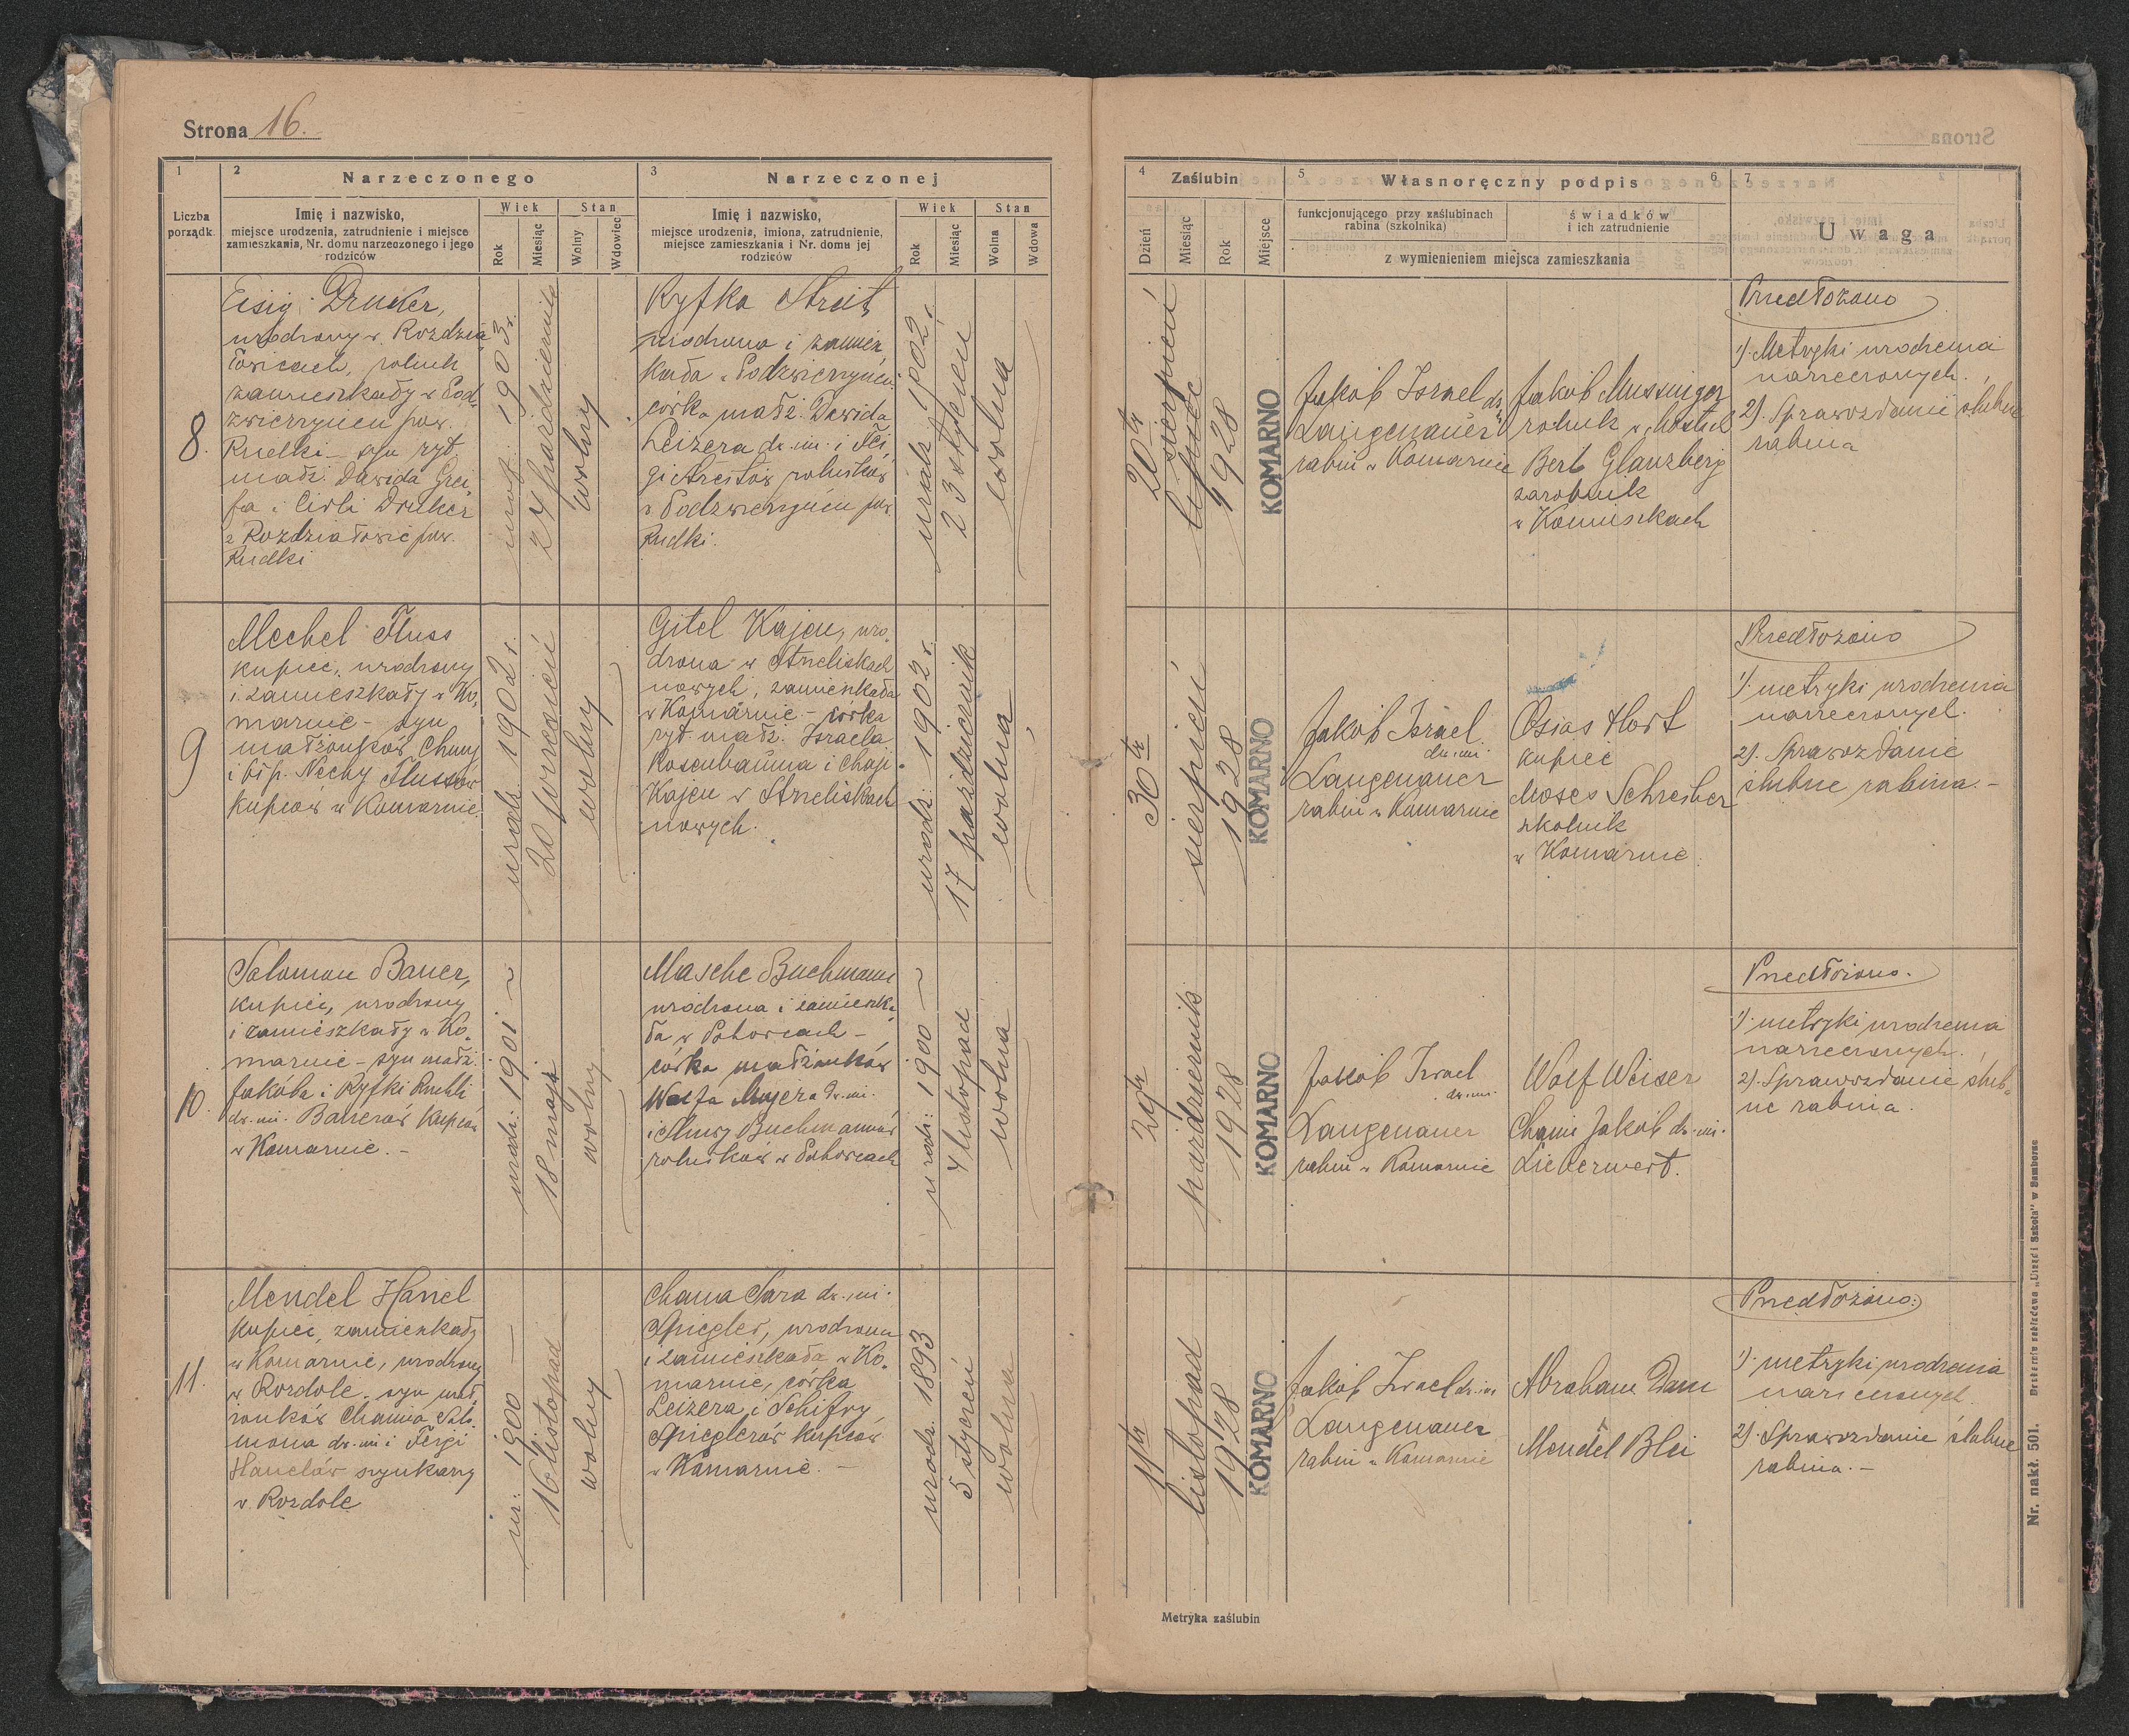 Strona 16.
1
2
Narzeczonego
3
Narzeczonej
Liczba
porządk.
Imię i nazwisko,
miejsce urodzenia, zatrudnienie i miejsce
zamieszkania, Nr. domu narzeczonego i jego
rodziców
Wiek
Stan
Rok
Miesiąc
Wolny
Wdowiec
Imię i nazwisko,
miejsce urodzenia, imiona, zatrudnienie,
miejsce zamieszkania i Nr. domu jej
rodziców
Wiek
Stan
Rok
Miesiąc
Wolna
Wdowa
4
Zaślubin
5
Własnoręczny podpis
6
7
Dzień
Miesiąc
Rok
Miejsce
funkcjonującego przy zaślubinach
rabina (szkolnika)
świadków
i ich zatrudnienie
z wymienieniem miejsca zamieszkania
Uwaga
8.
Eisig Druker,
urodzony w Rozdzia
łowicach, rolnik
zamieszkały w Pod-
zwierzyńcu pow.
Rudki – syn ryt.
małż. Dawida Grei
fa i Cirli Druker
z Rozdziałowic pow.
Rudki
1903 r.
27 października
wolny
Ryfka
urodzona i zamiesz
kała w Podzwierzyńcu
córka małż. Dawida
Leizera dw. im. i Fei
gi rolników
w Podzwierzyńcu pow.
Rudki.
1902 r.
23 styczeń
wolna
20go
sierpień
1928
KOMARNO
Jakob Israel dw.
Langenauer
rabin w Komarnie
Jakob Mussinger
rolnik
Berl Glanzberg
zarobnik
w Koniuszkach
Przedłożono
1). Metryki urodzenia
narzeczonych.
2). Sprawozdanie ślubne
rabina
9
Mechel Fluss
kupiec, urodzony
i zamieszkały w Ko,
marnie – syn
małżonków Chuny
i Nechy Flussów
kupców w Komarnie.
urodz: 1902 r.
20 wrzesień
wolny
Gitel Kajen, uro,
dzona w Strzeliskach
nowych, zamieszkała
w Komarnie – córka
ryt. małż. Israela
Rosenbauma i Chaji
Kajen w Strzeliskach
nowych.
urodz: 1902 r.
17 październik
wolna
30go
sierpień
1928
KOMARNO
Jakob Israel
dw. im.
Langenauer
rabin w Komarnie
Osias Hort
kupiec
Moses Schreiber
szkolnik
w Komarnie.
Przedłożono
1). metryki urodzenia
narzeczonych.
2). Sprawozdanie
ślubne rabina. –
10.
Salomon Bauer,
kupiec, urodzony
i zamieszkały w Ko,
marnie – syn małż.
Jakóba i Ryfki Ruchli
dw. im. Bauerów kupców
w Komarnie. –
urodz: 1901
18 maja
wolny
Masche Buchmann
urodzona i zamieszka
ła w Pohorcach –
córka małżonków
Wolfa Majera dw. im.
i Buchmannów
rolników w Pohorcach
urodz: 1900
4 listopad
wolna
29go
październik
1928
KOMARNO
Jakob Israel
dw. im.
Langenauer
rabin w Komarnie
Wolf Weiser
Chaim Jakob dw. im.
Lieberwert.
Przedłożono.
1). metryki urodzenia
narzeczonych.
2). Sprawozdanie ślub-
ne rabina.
11.
Mendel Hanel
kupiec, zamieszkały
w Komarnie, urodzony
w Rozdole, syn mał
żonków Chaima Salo
mona dw. im i Feigi
Hanelów szynkarzy
w Rozdole
ur: 1900 –
16 listopad
wolny
Chana Sara dw. im.
Spiegler, urodzona
i zamieszkała w Ko,
marnie, córka
Leizera i Schifry
Spieglerów kupców
w Komarnie. –
urodz. 1893
5 styczeń
wolna
11go
listopad
1928
KOMARNO
Jakob Israel dw. im
Langenauer
rabin w Komarnie
Abraham Dam
Mendel Blei
Przedłożono:
1). metryki urodzenia
narzeczonych.
2). Sprawozdanie ślubne
rabina. –
Metryka zaślubin
Nr. nakł. 501.
"Urząd i Szkoła" w Samborze